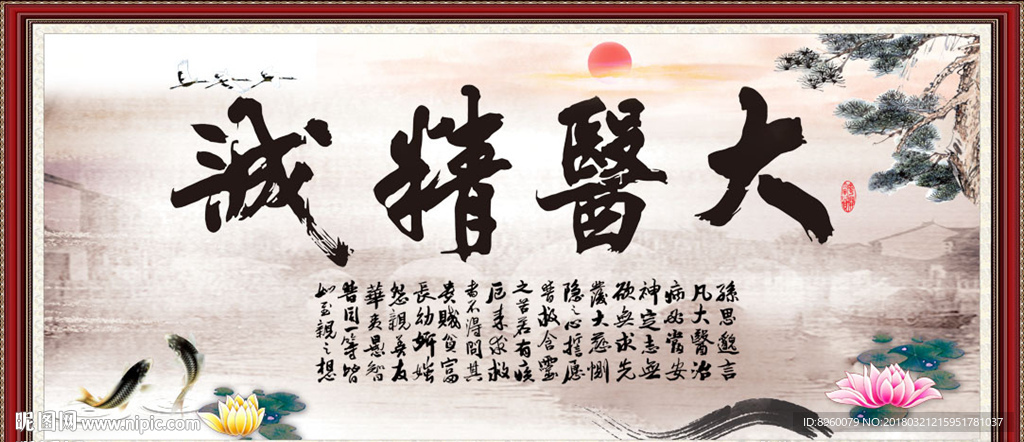 大醫精誠
孫思邈言
凡大醫治
病必當安
神定志無
欲無求先
發大慈惻
隱之心誓願
普救含靈
之苦若有疾
厄來求救
者不得問其
貴賤貧富
長幼妍媸
怨親善友
華夷愚智
普同一等皆
如至親之想
昵图网 www.nipic.com
ID:8960079 NO:20180321215951781037